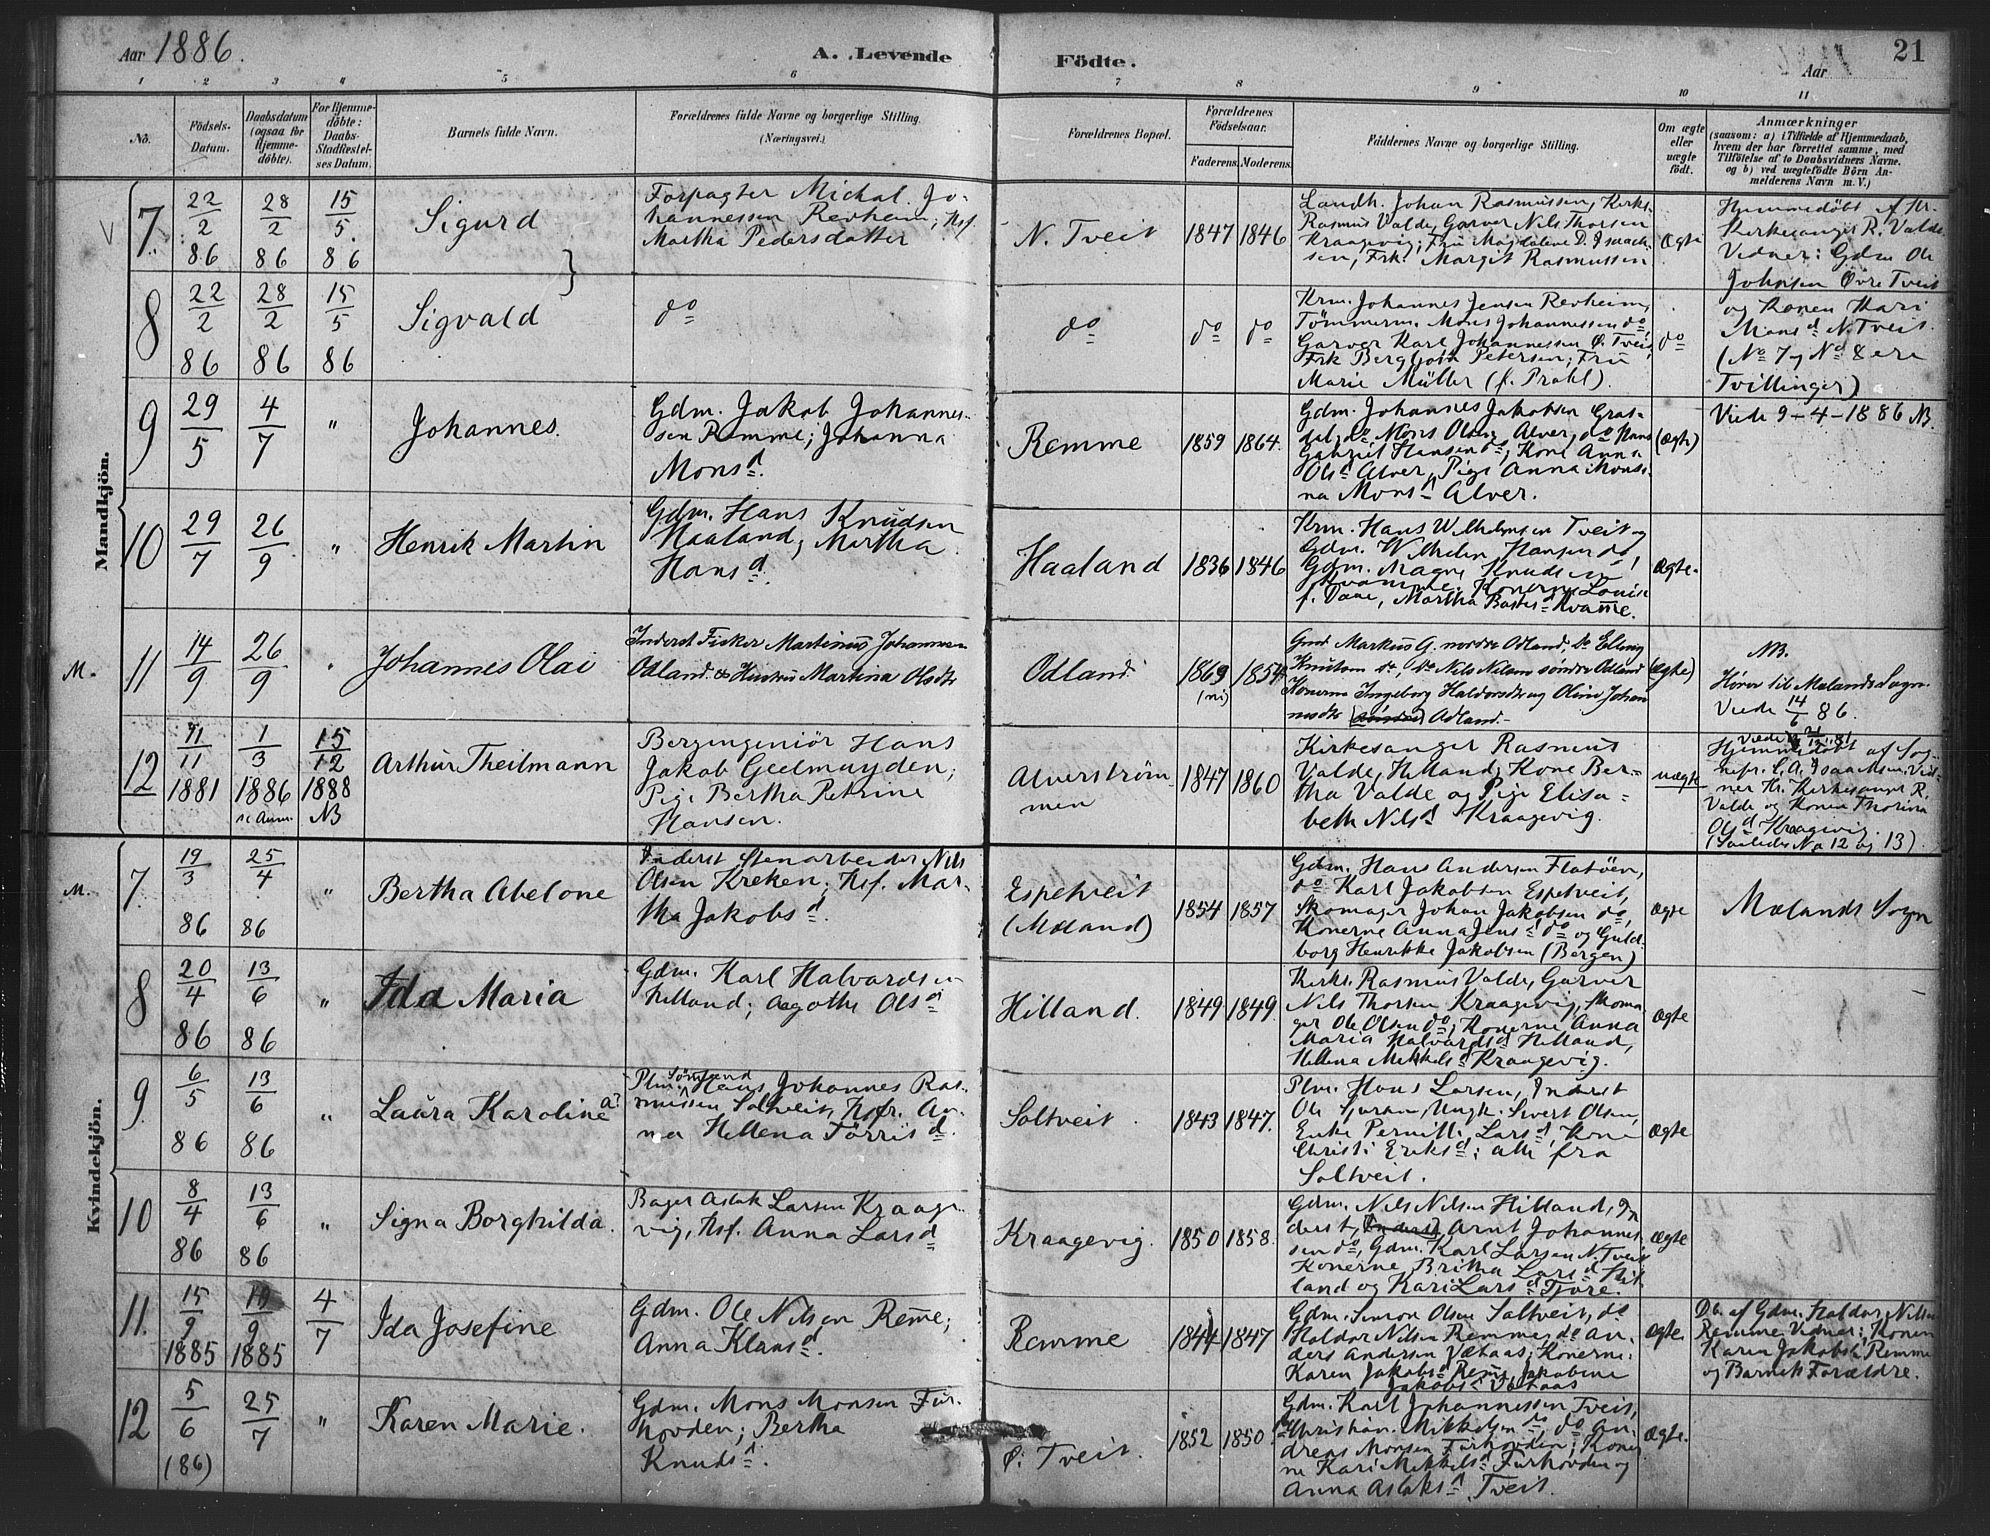 Aar 1886.
A. Levende Födte.
Aar
21
1 2 3 4 5 6 7 8 9 10 11
No.
Födsels-
Datum.
Daabsdatum
(ogsaa for
Hjemme-
döbte).
For Hjemme-
döbte:
Daabs-
Stadfæstel-
ses Datum.
Barnets fulde Navn.
Forældrenes fulde Navne og borgerlige Stilling.
(Næringsvei.)
Forældrenes Bopæl.
Forældrenes
Födselsaar.
Faderens.
Moderens.
Faddernes Navne og borgerlige Stilling.
Om ægte
eller
uægte
født.
Anmærkninger
(saasom: a) i Tilfælde af Hjemmedaab,
hvem der har forrettet samme, med
Tilføielse af to Daabsvidners Navne.
og b) ved uægtefödte Börn An-
melderens Navn m. V.)
Mandkjön.
7.
22/2 86
28/2 86
15/5 86
Sigurd
Forpagter Michal Jo-
hannessen Revheim; Hsf.
Martha Pedersdatter
N. Tveit
1847
1846
Landh. Johan Rasmussen, Kirks.
Rasmus Valde, Garver Nils Thorsen
Kraagevig; Fru Magdalene D. Isaach-
sen, Frk. Margit Rasmussen
Ægte
Hjemmedöbt af Hr.
Kirkesanger R. Valde
Vidner: Gdm Ole
Johnsen Øvre Tveit
8
22/2 86
28/2 86
15/5 86
Sigvald
do
do
do
do
Krm. Johannes Jensen Revheim,
Tömmerm. Mons Johannessen do,
Garver Karl Johannessen Ø. Tveit,
Frk Bergljot Petersen; Fru
Marie Müller (f. Prahl).
do
og Konen Kari
Monsd N. Tveit.
(No 7 og No 8 ere
Tvillinger)
9
29/5
4/7
"
Johannes.
Gdm. Jakob Johannes-
sen Remme; Johanna
Monsd.
Remme
1859
1864.
Gdm. Johannes Jakobsen Gras-
dal, do Mons Olsen Alver, do Hans
Gabriel Hansen do; Kone Anna
Olsd Alver, Pige Anna Mons-
na Monsd Alver.
(Ægte)
Viede 9-4-1886 NB.
10
29/7
26/9
"
Henrik Martin
Gdm. Hans Knudsen
Haaland; Martha
Hansd.
Haaland
1836
1846
Krm. Hans Wilhelmsen Tveit og
Gdm. Wilhelm Hansen do,
Gdm. Magne Knudsen
Kvamme. Konerne Louise
f. Dane, Martha Kvamme.
Ægte.
M.
11
14/9
26/9
"
Johannes Olai
Inderst Fisker Martinus Johannesen
Odland & Hustru Martina Olsdtr
Odland
1863
1854
Gmd Markus G. nordre Odland, do Elling
Knutsen do, do Nils Nilsen söndre Odland
Konerne Ingeborg Haldorsdtr og Oline Johan-
nesdtr Adland.-
(Ægte)
NB.
Hører til Mælands Sogn.
Viede 14/6 86.
12
11/11 1881
1/3 1886
15/12 1888
NB
Arthur Theilmann
Bergingeniör Hans
Jakob Geelmuyden;
Pige Bertha Petrine
Hansen.
Alverström-
men
1847
1860
Kirkesanger Rasmus
Valde, Helland; Kone Ber-
tha Valde og Pige Elisa-
beth Nilsd Kraagevig.
uægte
Hjemmedöbt af Sog-
nepr. C. A. Isaachsen, Vid-
ner Hr. Kirkesanger R.
Valde og Konen Thorina
Olsd Kraagevig.
(Saaledes No 12 og 13).
Kvindekjön.
M.
7.
19/3 86
25/4 86
"
Bertha Abelone
Inderst Stenarbeider Nils
Olsen Kreken; Hsf. Mar-
tha Jakobsd.
Espetveit
(Mæland)
1854
1857
Gdm. Hans Andersen Flatöen,
do Karl Jakobsen Espetveit,
Skomager Johan Jakobsen do,
Konerne Anna Jensd do og Guld-
borg Henrikke Jakobsen (Bergen)
Ægte
Mælands Sogn
8
20/4 86
13/6 86
"
Ida Maria
Gdm. Karl Halvardsen
Helland; Aagothe Olsd
Hilland.
1849
1849.
Kirks. Rasmus Valde, Garver
Nils Thorsen Kraagevig, Skoma-
ger Ole Olsen do; Konerne Anna
Maria Halvardsd Helland,
Hellena Mikkelsd Kraagevig.
Ægte
9
6/5 86
13/6 86
"
Laura Karoline
Plm. Sömand Hans Johannes Ras-
mussen Soltveit, Hsfr. An-
na Hellena Törrisd.
Soltveit.
1843
1847.
Plm. Hans Larsen, Inderst
Ole Ungk. Sivert Olsen,
Enke Pernille Larsd, Kone
Christi Eriksd; alle fra
Soltveit.
Ægte
10
8/4 86
13/6 86
"
Signa Borghilda.
Bager Aslak Larsen Kraage-
vig, Hsf. Anna Larsd
Kraagevig.
1850
1858.
Gdm. Nils Nilsen Hilland, In-
derst, Arnt Johannes-
sen do, Gdm. Karl Larsen N. Tveit
Konerne Britha Larsd Hil-
land og Kari Larsd Fjöre.
Ægte
11.
15/9 1885
19/9 1885
4/7
Ida Josefine
Gdm. Ole Nilsen Remme;
Anna Klausd.
Remme
1844
1847
Gdm. Simon Olsen Soltveit, do
Haldor Nilsen Remme, do An-
ders Andersen Vætaas; Konerne:
Karen Jakobsd Remme, Jakobine
Jakobsd Vætaas
Ægte.
Db. af Gdm. Haldor Nilsen
Remme. Vidner: Konen
Karen Jakobsd Remme
og Barnets Forældre.
12
5/6 (86)
25/7
"
Karen Marie.
Gdm. Mons Monsen Fur-
hovden; Bertha
Knudsd.
Ø. Tveit.
1852
1850
Gdm. Karl Johannessen Tveit,
Christian Mikkelsen do, do An-
dreas Monsen Furhovden; Koner-
ne Kari Mikkelsd Furhovden og
Anna Aslaksd Tveit.
Ægte.